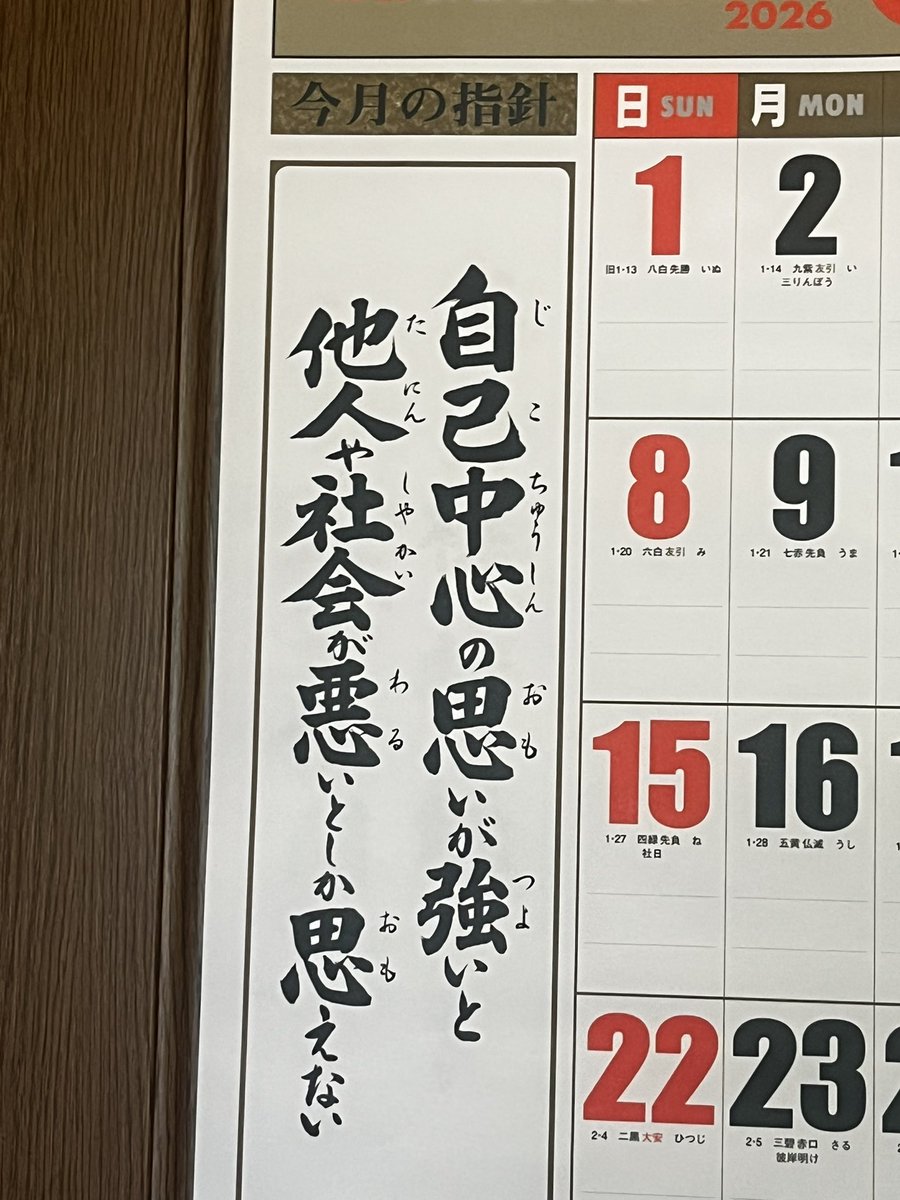 2026
今月の指針
自己中心の思いが強いと
じ こ ちゅうしん おも つよ
他人や社会が悪いとしか思えない
た にん しゃかい わる おも
日 SUN 月 MON
1 2
旧1・13 八白 先勝 いぬ
1・14 九紫 友引 い
三りんぼう
8 9
1・20 六白 友引 み
1・21 七赤 先負 うま
15 16
1・27 四緑 先負 ね
社日
1・28 五黄 仏滅 うし
22 23
2・4 二黒 大安 ひつじ
2・5 三碧 赤口 さる
彼岸明け